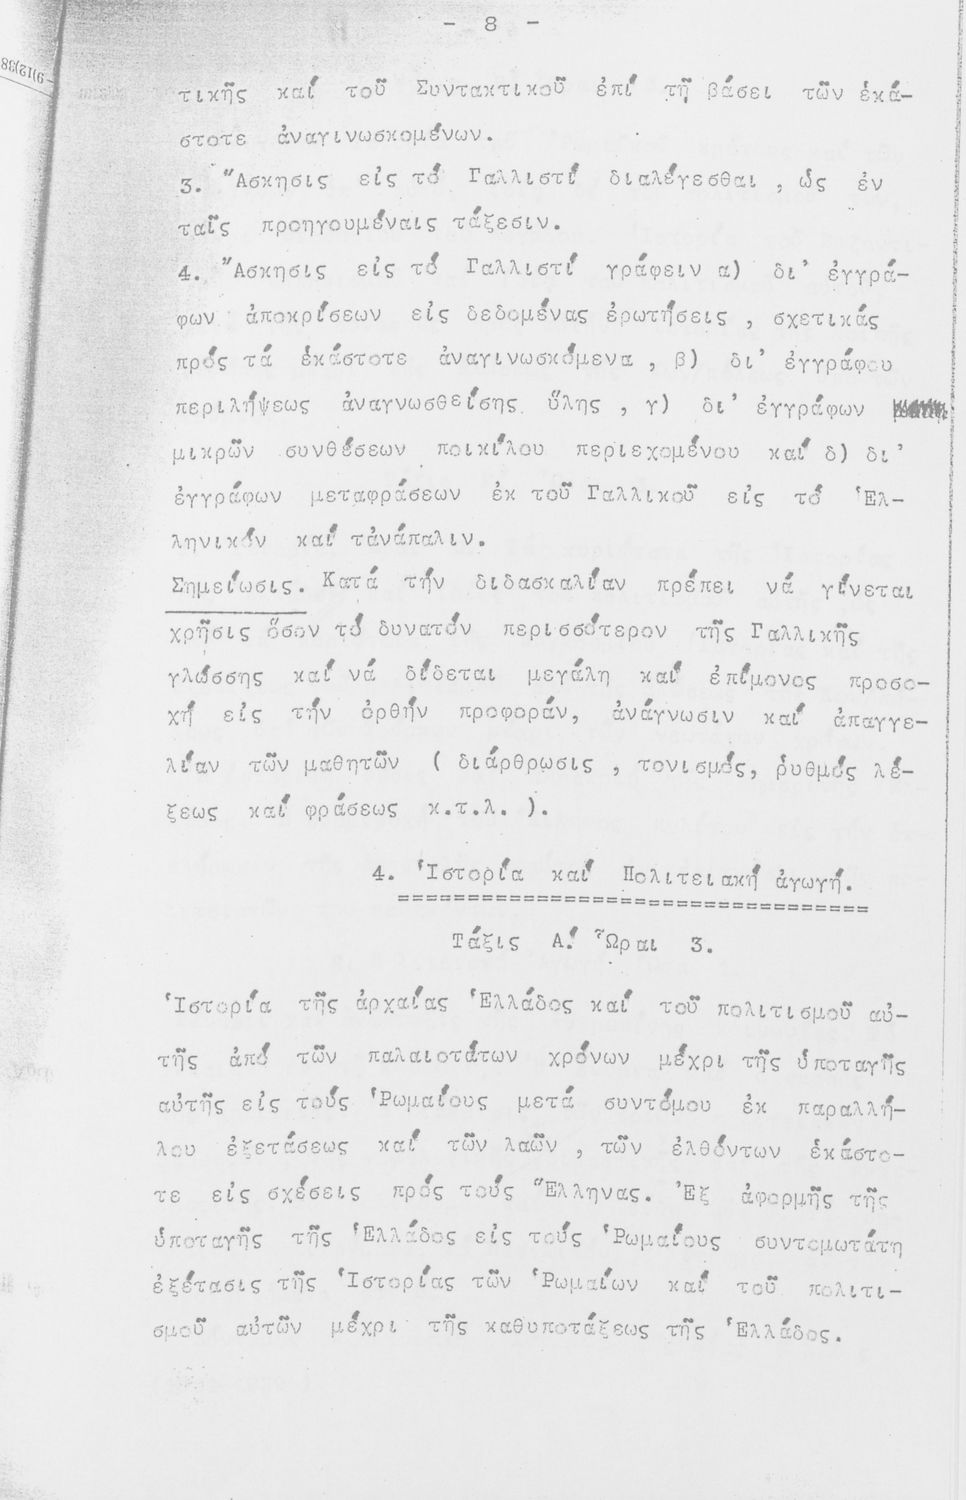 - 8 -
9)12)38
τικῆς καί τοῦ Συντακτικοῦ ἐπί τῇ βάσει τῶν ἑκά-
στοτε ἀναγινωσκομένων.
3. Ἄσκησις εἰς τό Γαλλιστί διαλέγεσθαι , ὡς ἐν
ταῖς προηγουμέναις τάξεσιν.
4. Ἄσκησις εἰς τό Γαλλιστί γράφειν α) δι' ἐγγρά-
φων ἀποκρίσεων εἰς δεδομένας ἐρωτήσεις , σχετικάς
πρός τά ἑκάστοτε ἀναγινωσκόμενα , β) δι' ἐγγράφου
περιλήψεως ἀναγνωσθείσης ὕλης , γ) δι' ἐγγράφων
μικρῶν συνθέσεων ποικίλου περιεχομένου καί δ) δι'
ἐγγράφων μεταφράσεων ἐκ τοῦ Γαλλικοῦ εἰς τό Ἑλ-
ληνικόν καί τἀνάπαλιν.
Σημείωσις. Κατά τήν διδασκαλίαν πρέπει νά γίνεται
χρῆσις ὅσον τό δυνατόν περισσότερον τῆς Γαλλικῆς
γλώσσης καί νά δίδεται μεγάλη καί ἐπίμονος προσο-
χή εἰς τήν ὀρθήν προφοράν, ἀνάγνωσιν καί ἀπαγγε-
λίαν τῶν μαθητῶν ( διάρθρωσις , τονισμός, ῥυθμός λέ-
ξεως καί φράσεως κ.τ.λ. ).
4. Ἱστορία καί Πολιτειακή ἀγωγή.
Τάξις Α.' Ὧραι 3.
Ἱστορία τῆς ἀρχαίας Ἑλλάδος καί τοῦ πολιτισμοῦ αὐ-
τῆς ἀπό τῶν παλαιοτάτων χρόνων μέχρι τῆς ὑποταγῆς
αὐτῆς εἰς τούς Ῥωμαίους μετά συντόμου ἐκ παραλλή-
λου ἐξετάσεως καί τῶν λαῶν , τῶν ἐλθόντων ἑκάστο-
τε εἰς σχέσεις πρός τούς Ἕλληνας. Ἐξ ἀφορμῆς τῆς
ὑποταγῆς τῆς Ἑλλάδος εἰς τούς Ῥωμαίους συντομωτάτη
ἐξέτασις τῆς Ἱστορίας τῶν Ῥωμαίων καί τοῦ πολιτι-
σμοῦ αὐτῶν μέχρι τῆς καθυποτάξεως τῆς Ἑλλάδος.